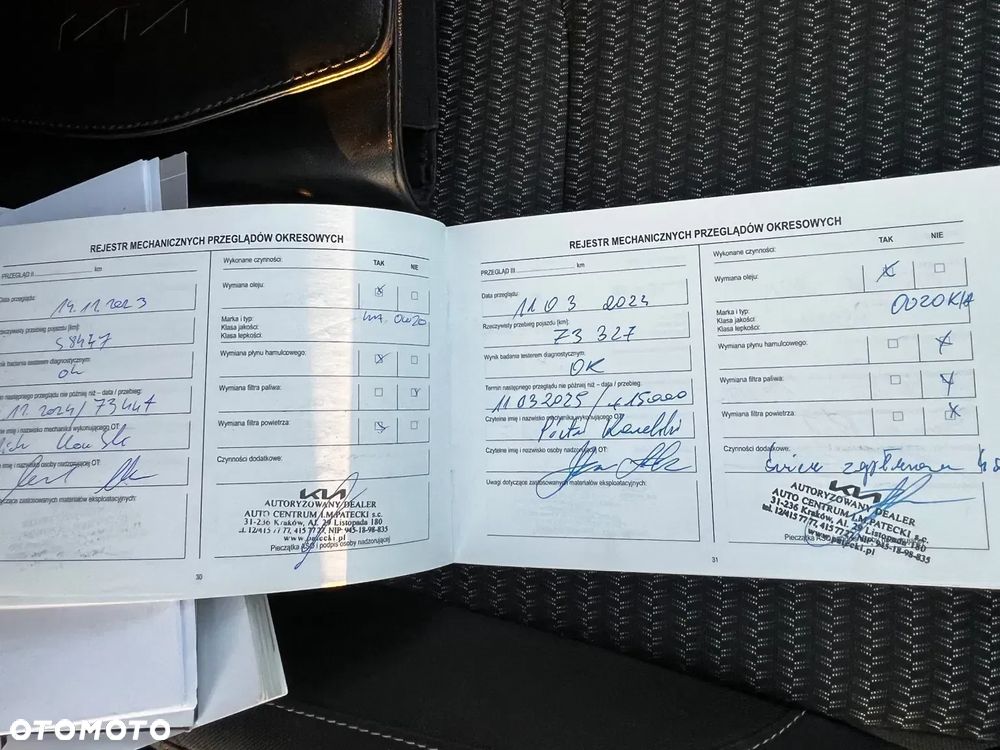 KIA
REJESTR MECHANICZNYCH PRZEGLĄDÓW OKRESOWYCH
PRZEGLĄD II km
Data przeglądu:
14.11.2023
Rzeczywisty przebieg pojazdu [km]:
58447
Wynik badania testerem diagnostycznym:
ok
następnego przeglądu nie później niż – data / przebieg:
11.2024/73447
imię i nazwisko mechanika wykonującego OT:
imię i nazwisko osoby nadzorującej OT:
dotyczące zastosowanych materiałów eksploatacyjnych:
Wykonane czynności: TAK NIE
Wymiana oleju: X
Marka i typ: 0W20
Klasa jakości:
Klasa lepkości:
Wymiana płynu hamulcowego: X
Wymiana filtra paliwa: X
Wymiana filtra powietrza: X
Czynności dodatkowe:
KIA
AUTORYZOWANY DEALER
AUTO CENTRUM J.M.PATECKI s.c.
31-236 Kraków, Al. 29 Listopada 180
tel. 12/415 77 77, 415 77 27, NIP: 945-18-98-835
www.patecki.pl
Pieczątka ASO i podpis osoby nadzorującej
30
REJESTR MECHANICZNYCH PRZEGLĄDÓW OKRESOWYCH
PRZEGLĄD III km
Data przeglądu:
11 03 2024
Rzeczywisty przebieg pojazdu [km]:
73 327
Wynik badania testerem diagnostycznym:
OK
Termin następnego przeglądu nie później niż – data / przebieg:
11 03 2025 / +15000
Czytelne imię i nazwisko mechanika wykonującego OT:
Czytelne imię i nazwisko osoby nadzorującej OT:
Uwagi dotyczące zastosowanych materiałów eksploatacyjnych:
TAK NIE
Wykonane czynności:
Wymiana oleju: X
Marka i typ: 0W20 KIA
Klasa jakości:
Klasa lepkości:
Wymiana płynu hamulcowego: X
Wymiana filtra paliwa: X
Wymiana filtra powietrza: X
Czynności dodatkowe:
KIA
AUTORYZOWANY DEALER
AUTO CENTRUM J.M.PATECKI s.c.
31-236 Kraków, Al. 29 Listopada 180
tel. 12/415 77 77, 415 77 27, NIP: 945-18-98-835
www.patecki.pl
Pieczątka ASO
31
OTOMOTO